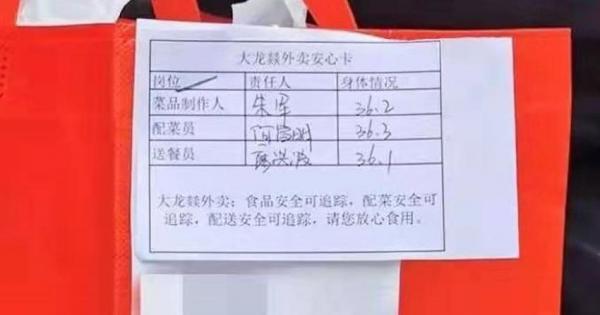 大龙燚外卖安心卡
岗位 责任人 身体情况
菜品制作人 朱军 36.2
配菜员 36.3
送餐员 36.1
大龙燚外卖：食品安全可追踪，配菜安全可
追踪，配送安全可追踪，请您放心食用。